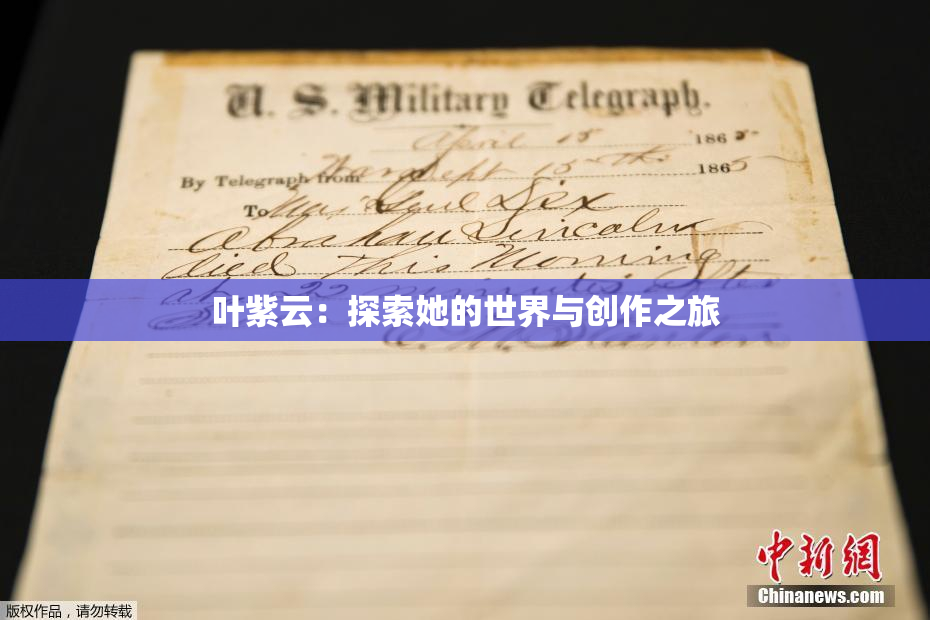 U. S. Military Telegraph.
April 15 1865
By Telegraph from War Dept 15th 1865
To Maj Genl Dix
Abraham Lincoln
died This Morning
at 22 minutes after
叶紫云：探索她的世界与创作之旅
E. M. Stanton
中新網
Chinanews.com
版权作品，请勿转载